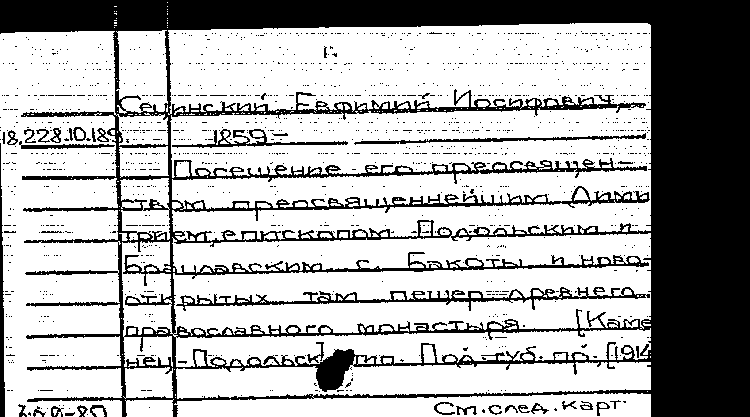 Сецинский, Евфимий Иосифович,
18.228.10.189. 1859-
Посещение его преосвящен-
ством преосвященнейшим Дими
трием, епископом Подольским и
Брацлавским с. Бакоты и ново-
открытых там пещер древнего
православного монастыря. [Каме
нец-Подольск] тип. Под. губ. пр., [1914
См. след. карт.